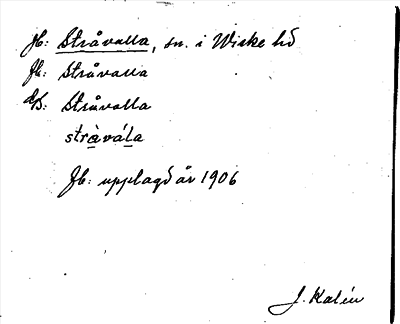 Jb: Stråvalla, sn. i Wiske hd
Jb: Stråvalla
ds: Stråvalla
stràvála
Jb: upplagd år 1906
J. Kalén